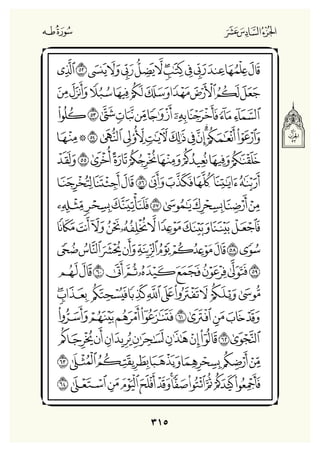 الجُزْءُ السَّادِسَ عَشَرَ
سُورَةُ طه
قَالَ عِلْمُهَا عِندَ رَبِّي فِي كِتَٰبٍۖ لَّا يَضِلُّ رَبِّي وَلَا يَنسَى ٥٢ ٱلَّذِي
جَعَلَ لَكُمُ ٱلْأَرْضَ مَهْدًا وَسَلَكَ لَكُمْ فِيهَا سُبُلًا وَأَنزَلَ مِنَ
ٱلسَّمَآءِ مَآءً فَأَخْرَجْنَا بِهِۦٓ أَزْوَٰجًا مِّن نَّبَاتٍ شَتَّىٰ ٥٣ كُلُوا۟
وَٱرْعَوْا۟ أَنْعَٰمَكُمْۗ إِنَّ فِي ذَٰلِكَ لَـَٔايَٰتٍ لِّأُو۟لِي ٱلنُّهَىٰ ٥٤ ۞ مِنْهَا
خَلَقْنَٰكُمْ وَفِيهَا نُعِيدُكُمْ وَمِنْهَا نُخْرِجُكُمْ تَارَةً أُخْرَىٰ ٥٥ وَلَقَدْ
أَرَيْنَٰهُ ءَايَٰتِنَا كُلَّهَا فَكَذَّبَ وَأَبَىٰ ٥٦ قَالَ أَجِئْتَنَا لِتُخْرِجَنَا
مِنْ أَرْضِنَا بِسِحْرِكَ يَٰمُوسَىٰ ٥٧ فَلَنَأْتِيَنَّكَ بِسِحْرٍ مِّثْلِهِۦ
فَٱجْعَلْ بَيْنَنَا وَبَيْنَكَ مَوْعِدًا لَّا نُخْلِفُهُۥ نَحْنُ وَلَآ أَنتَ مَكَانًا
سُوًى ٥٨ قَالَ مَوْعِدُكُمْ يَوْمُ ٱلزِّينَةِ وَأَن يُحْشَرَ ٱلنَّاسُ ضُحًى
٥٩ فَتَوَلَّىٰ فِرْعَوْنُ فَجَمَعَ كَيْدَهُۥ ثُمَّ أَتَىٰ ٦٠ قَالَ لَهُم
مُّوسَىٰ وَيْلَكُمْ لَا تَفْتَرُوا۟ عَلَى ٱللَّهِ كَذِبًا فَيُسْحِتَكُم بِعَذَابٍۖ
وَقَدْ خَابَ مَنِ ٱفْتَرَىٰ ٦١ فَتَنَٰزَعُوٓا۟ أَمْرَهُم بَيْنَهُمْ وَأَسَرُّوا۟
ٱلنَّجْوَىٰ ٦٢ قَالُوٓا۟ إِنْ هَٰذَٰنِ لَسَٰحِرَٰنِ يُرِيدَانِ أَن يُخْرِجَاكُم
مِّنْ أَرْضِكُم بِسِحْرِهِمَا وَيَذْهَبَا بِطَرِيقَتِكُمُ ٱلْمُثْلَىٰ ٦٣
فَأَجْمِعُوا۟ كَيْدَكُمْ ثُمَّ ٱئْتُوا۟ صَفًّاۚ وَقَدْ أَفْلَحَ ٱلْيَوْمَ مَنِ ٱسْتَعْلَىٰ ٦٤
٣١٥